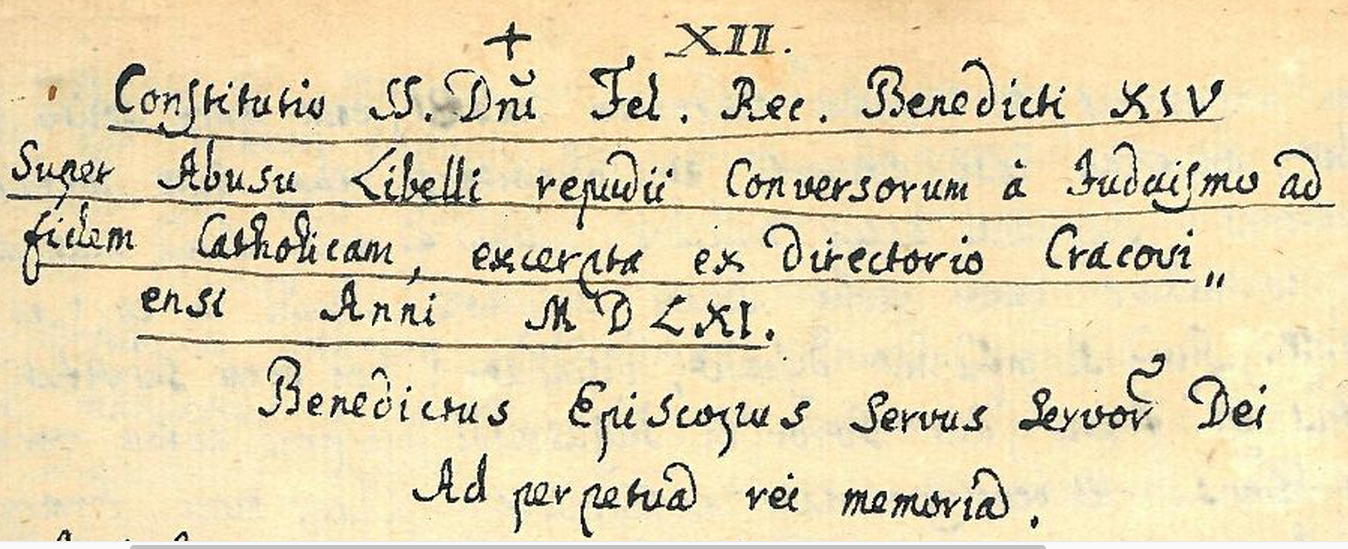 + XII.
Constitutio SS. Dnĩ Fel. Rec. Benedicti XIV
Super Abusu Libelli repudii Conversorum à Judaismo ad
fidem Catholicam, excerpta ex Directorio Cracovi„
ensi Anni MDLXI.
Benedictus Episcopus Servus Servor̃ Dei
Ad perpetuã rei memoriã.